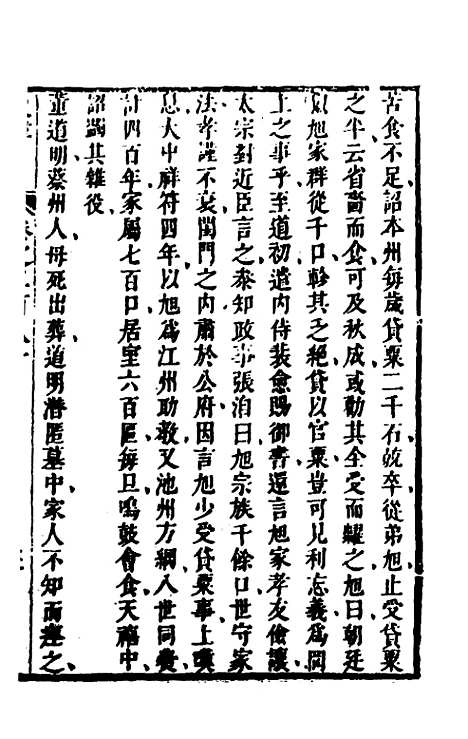 苦食不足詔本州每歲貸粟二千石兢卒從弟旭止受貸粟
之半云省嗇而食可及秋成或勸其全受而糶之旭曰朝廷
以旭家群從千口軫其乏絕貸以官粟豈可見利忘義為罔
上之事乎至道初遣內侍裴愈賜御書還言旭家孝友儉讓
太宗對近臣言之叅知政事張洎曰旭宗族千餘口世守家
法孝謹不衰閨門之內肅於公府因言旭少受貸粟事上嘆
息大中祥符四年以旭為江州助教又池州方綱八世同㸑
計四百年家屬七百口居室六百區每旦鳴鼓會食天禧中
詔蠲其雜役
董道明蔡州人母死出葬道明潛匿墓中家人不知而瘞之